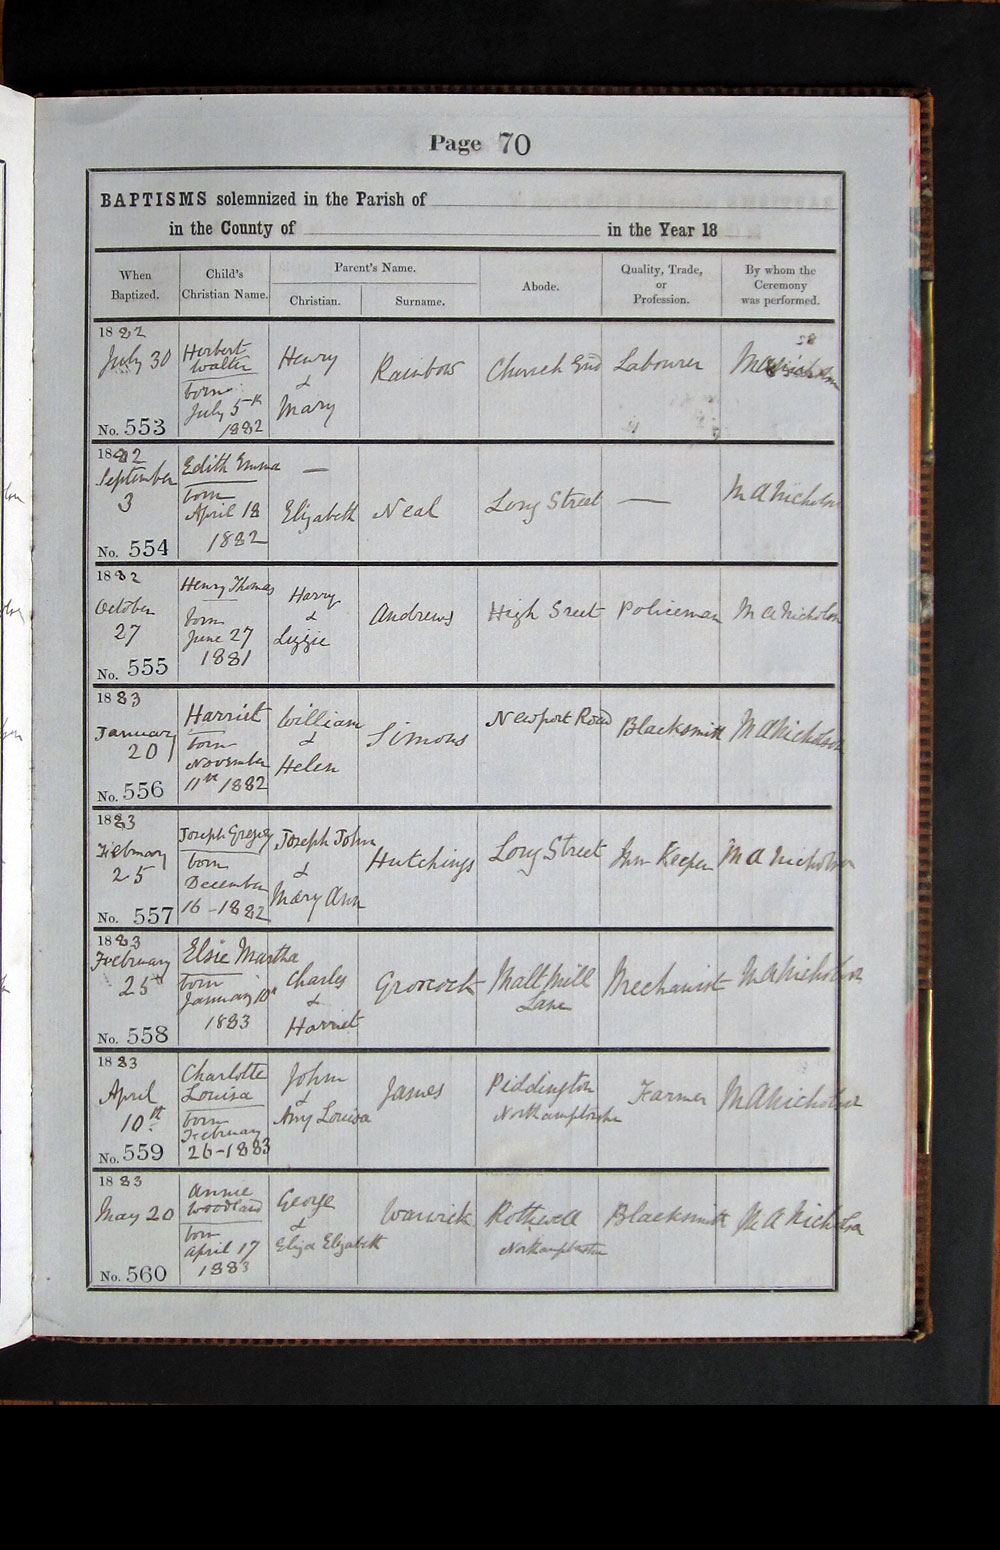 Page 70
BAPTISMS solemnized in the Parish of
in the County of in the Year 18
When Baptized.
Child's Christian Name.
Parent's Name.
Christian.
Surname.
Abode.
Quality, Trade, or Profession.
By whom the Ceremony was performed.
1882
July 30
No. 553
Herbert
Walter
born
July 5th
1882
Henry
&
Mary
Rainbow
Church End
Labourer
M A Nicholson
1882
September
3
No. 554
Edith Emma
born
April 18
1882
—
Elizabeth
Neal
Long Street
—
M A Nicholson
1882
October
27
No. 555
Henry Thomas
born
June 27
1881
Harry
&
Lizzie
Andrews
High Sreet
Policeman
M A Nicholson
1883
January
20
No. 556
Harriet
born
November
11th 1882
William
&
Helen
Simons
Newport Road
Blacksmith
M A Nicholson
1883
February
25
No. 557
Joseph Gregory
born
December
16 - 1882
Joseph John
&
Mary Ann
Hutchings
Long Street
Inn Keeper
M A Nicholson
1883
February
25th
No. 558
Elsie Martha
born
January
1883
Charles
&
Harriet
Grocock
Malt Mill
Lane
Mechanist
M A Nicholson
1883
April
10th
No. 559
Charlotte
Louisa
born
February
26 - 1883
John
&
Amy Louisa
James
Piddington
Northamptonshire
Farmer
M A Nicholson
1883
May 20
No. 560
Annie
Woodland
born
April 17
1883
George
&
Eliza Elizabeth
Warwick
Rothwell
Northamptonshire
Blacksmith
M A Nicholson